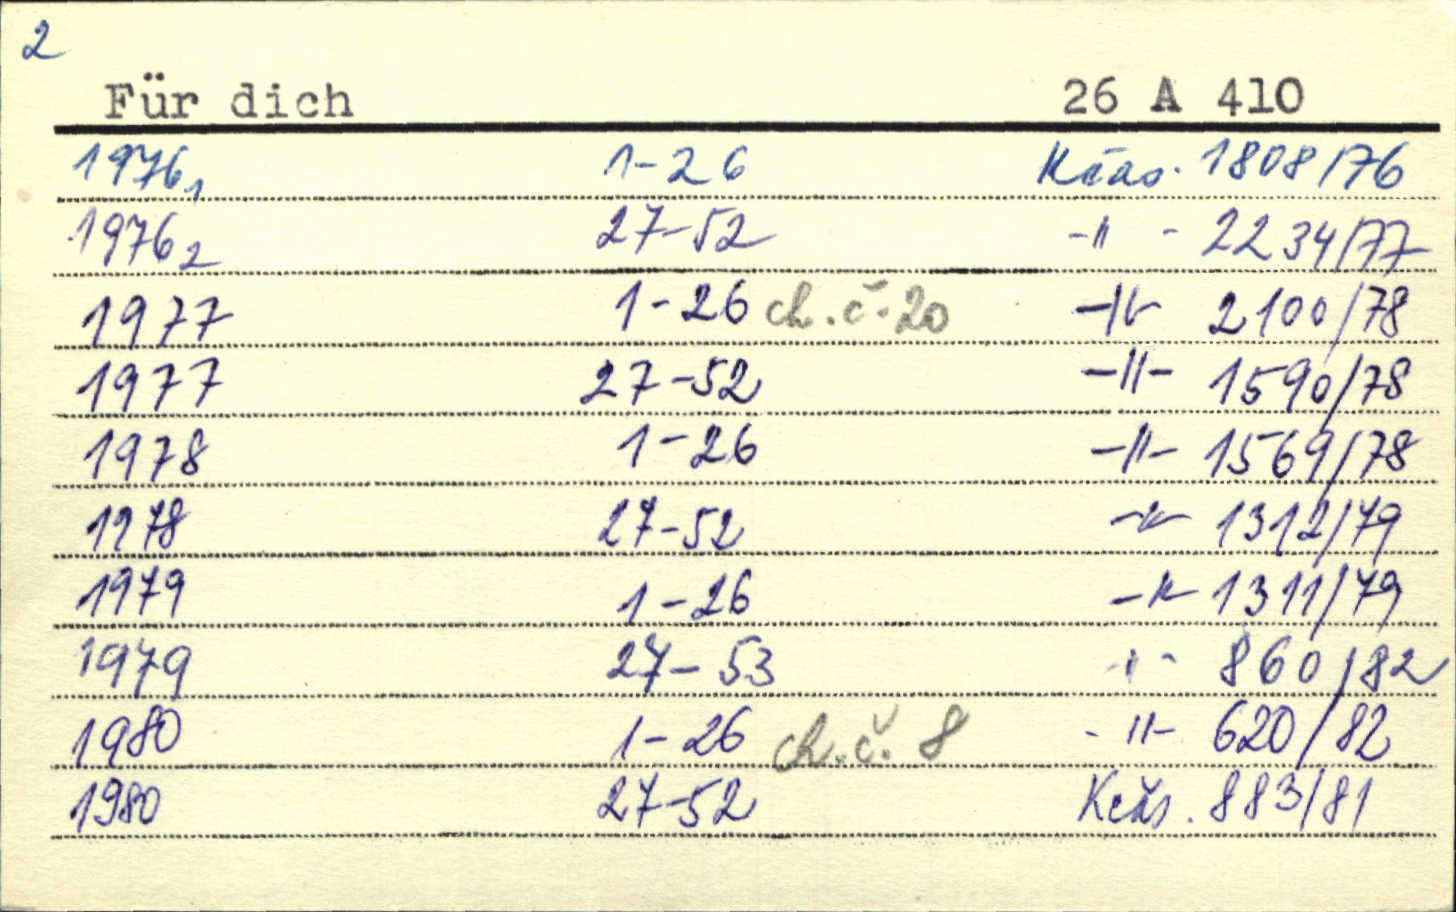 2
Für dich 26 A 410
1976₁ 1-26 Kčas. 1808/76
1976₂ 27-52 -"- 2234/77
1977 1-26 ch.č.20 -"- 2100/78
1977 27-52 -"- 1590/78
1978 1-26 -"- 1569/78
1978 27-52 -"- 1312/79
1979 1-26 -"- 1311/79
1979 27-53 -"- 860/82
1980 1-26 ch.č. 8 -"- 620/82
1980 27-52 Kčas. 883/81